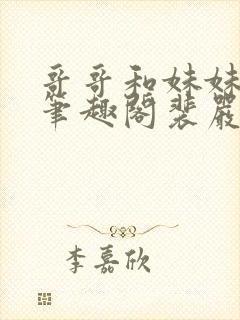 哥哥和妹妹
笔趣阁裴嚴
李嘉欣